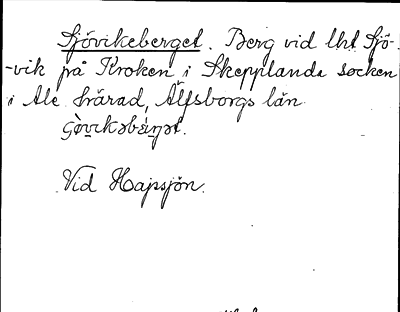 Sjövikeberget. Berg vid lht Sjö-
-vik på Kroken i Skepplanda socken
i Ale härad, Älfsborgs län.
Vid Hapsjön.